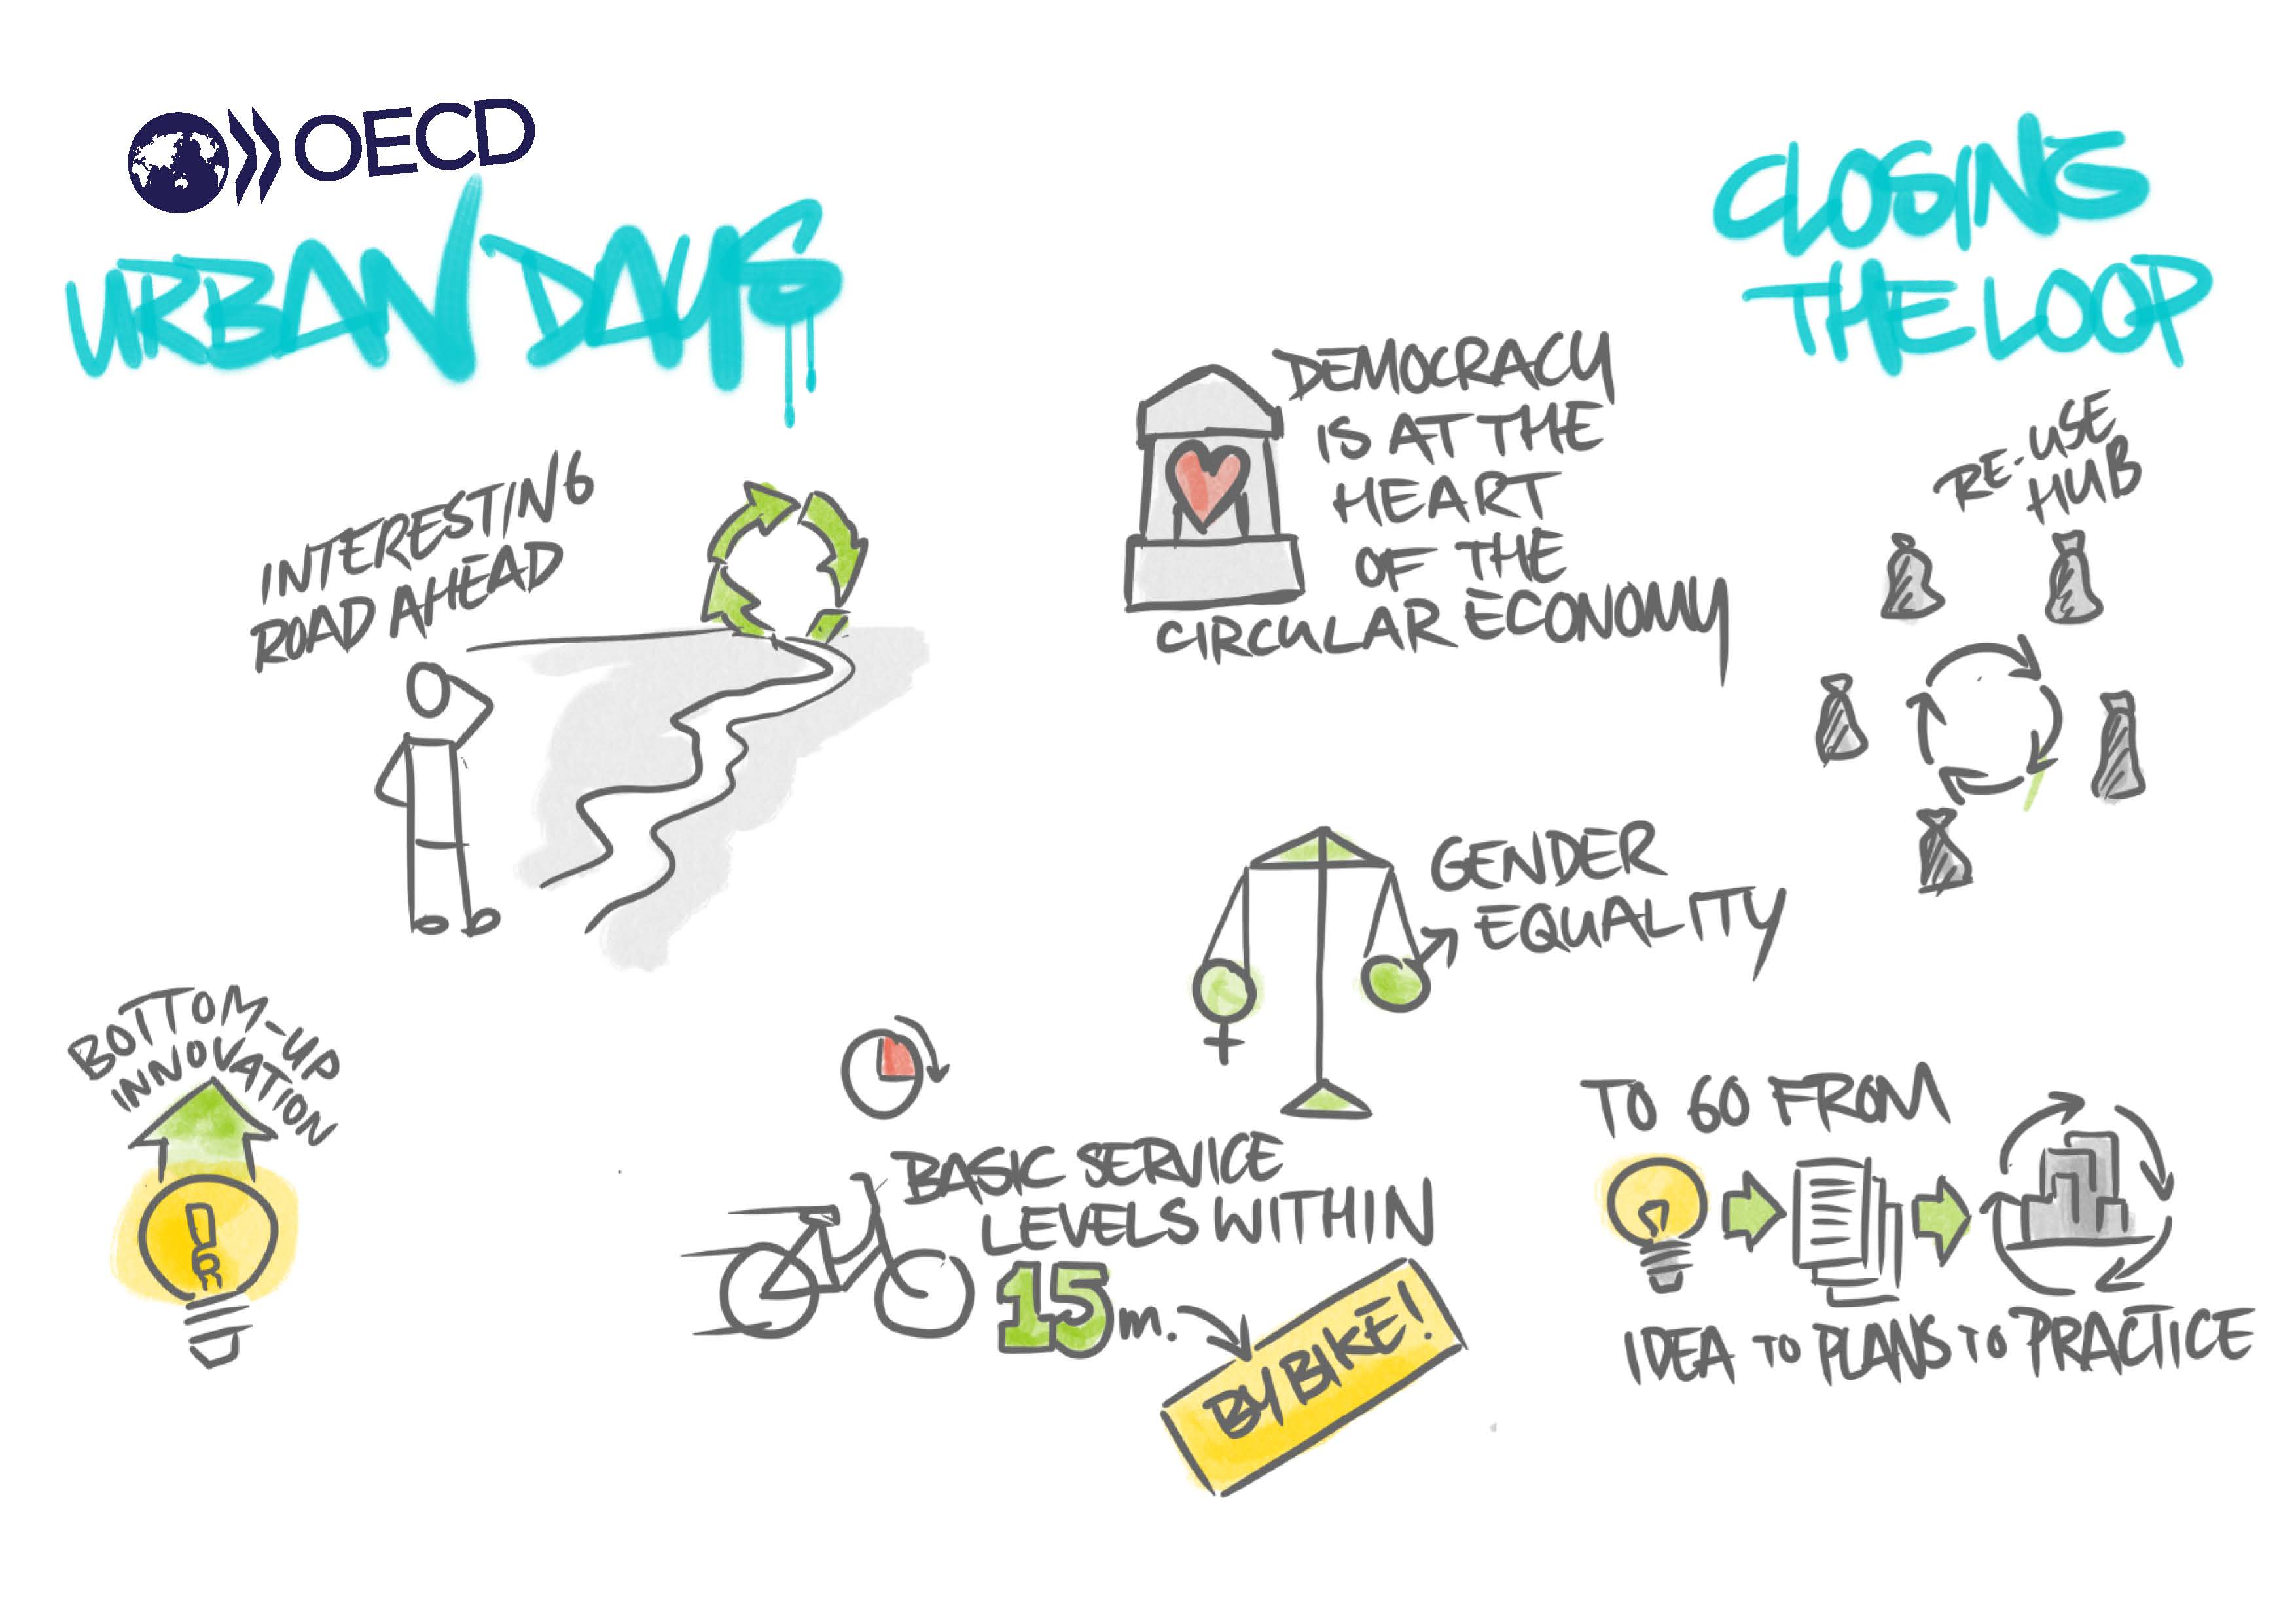 OECD
URBAN DAYS
CLOSING
THE LOOP
INTERESTING
ROAD AHEAD
DEMOCRACY
IS AT THE
HEART
OF THE
CIRCULAR ECONOMY
RE-USE
HUB
GENDER
EQUALITY
BOTTOM-UP
INNOVATION
BASIC SERVICE
LEVELS WITHIN
15 m.
BY BIKE!
TO GO FROM
IDEA TO PLANS TO PRACTICE